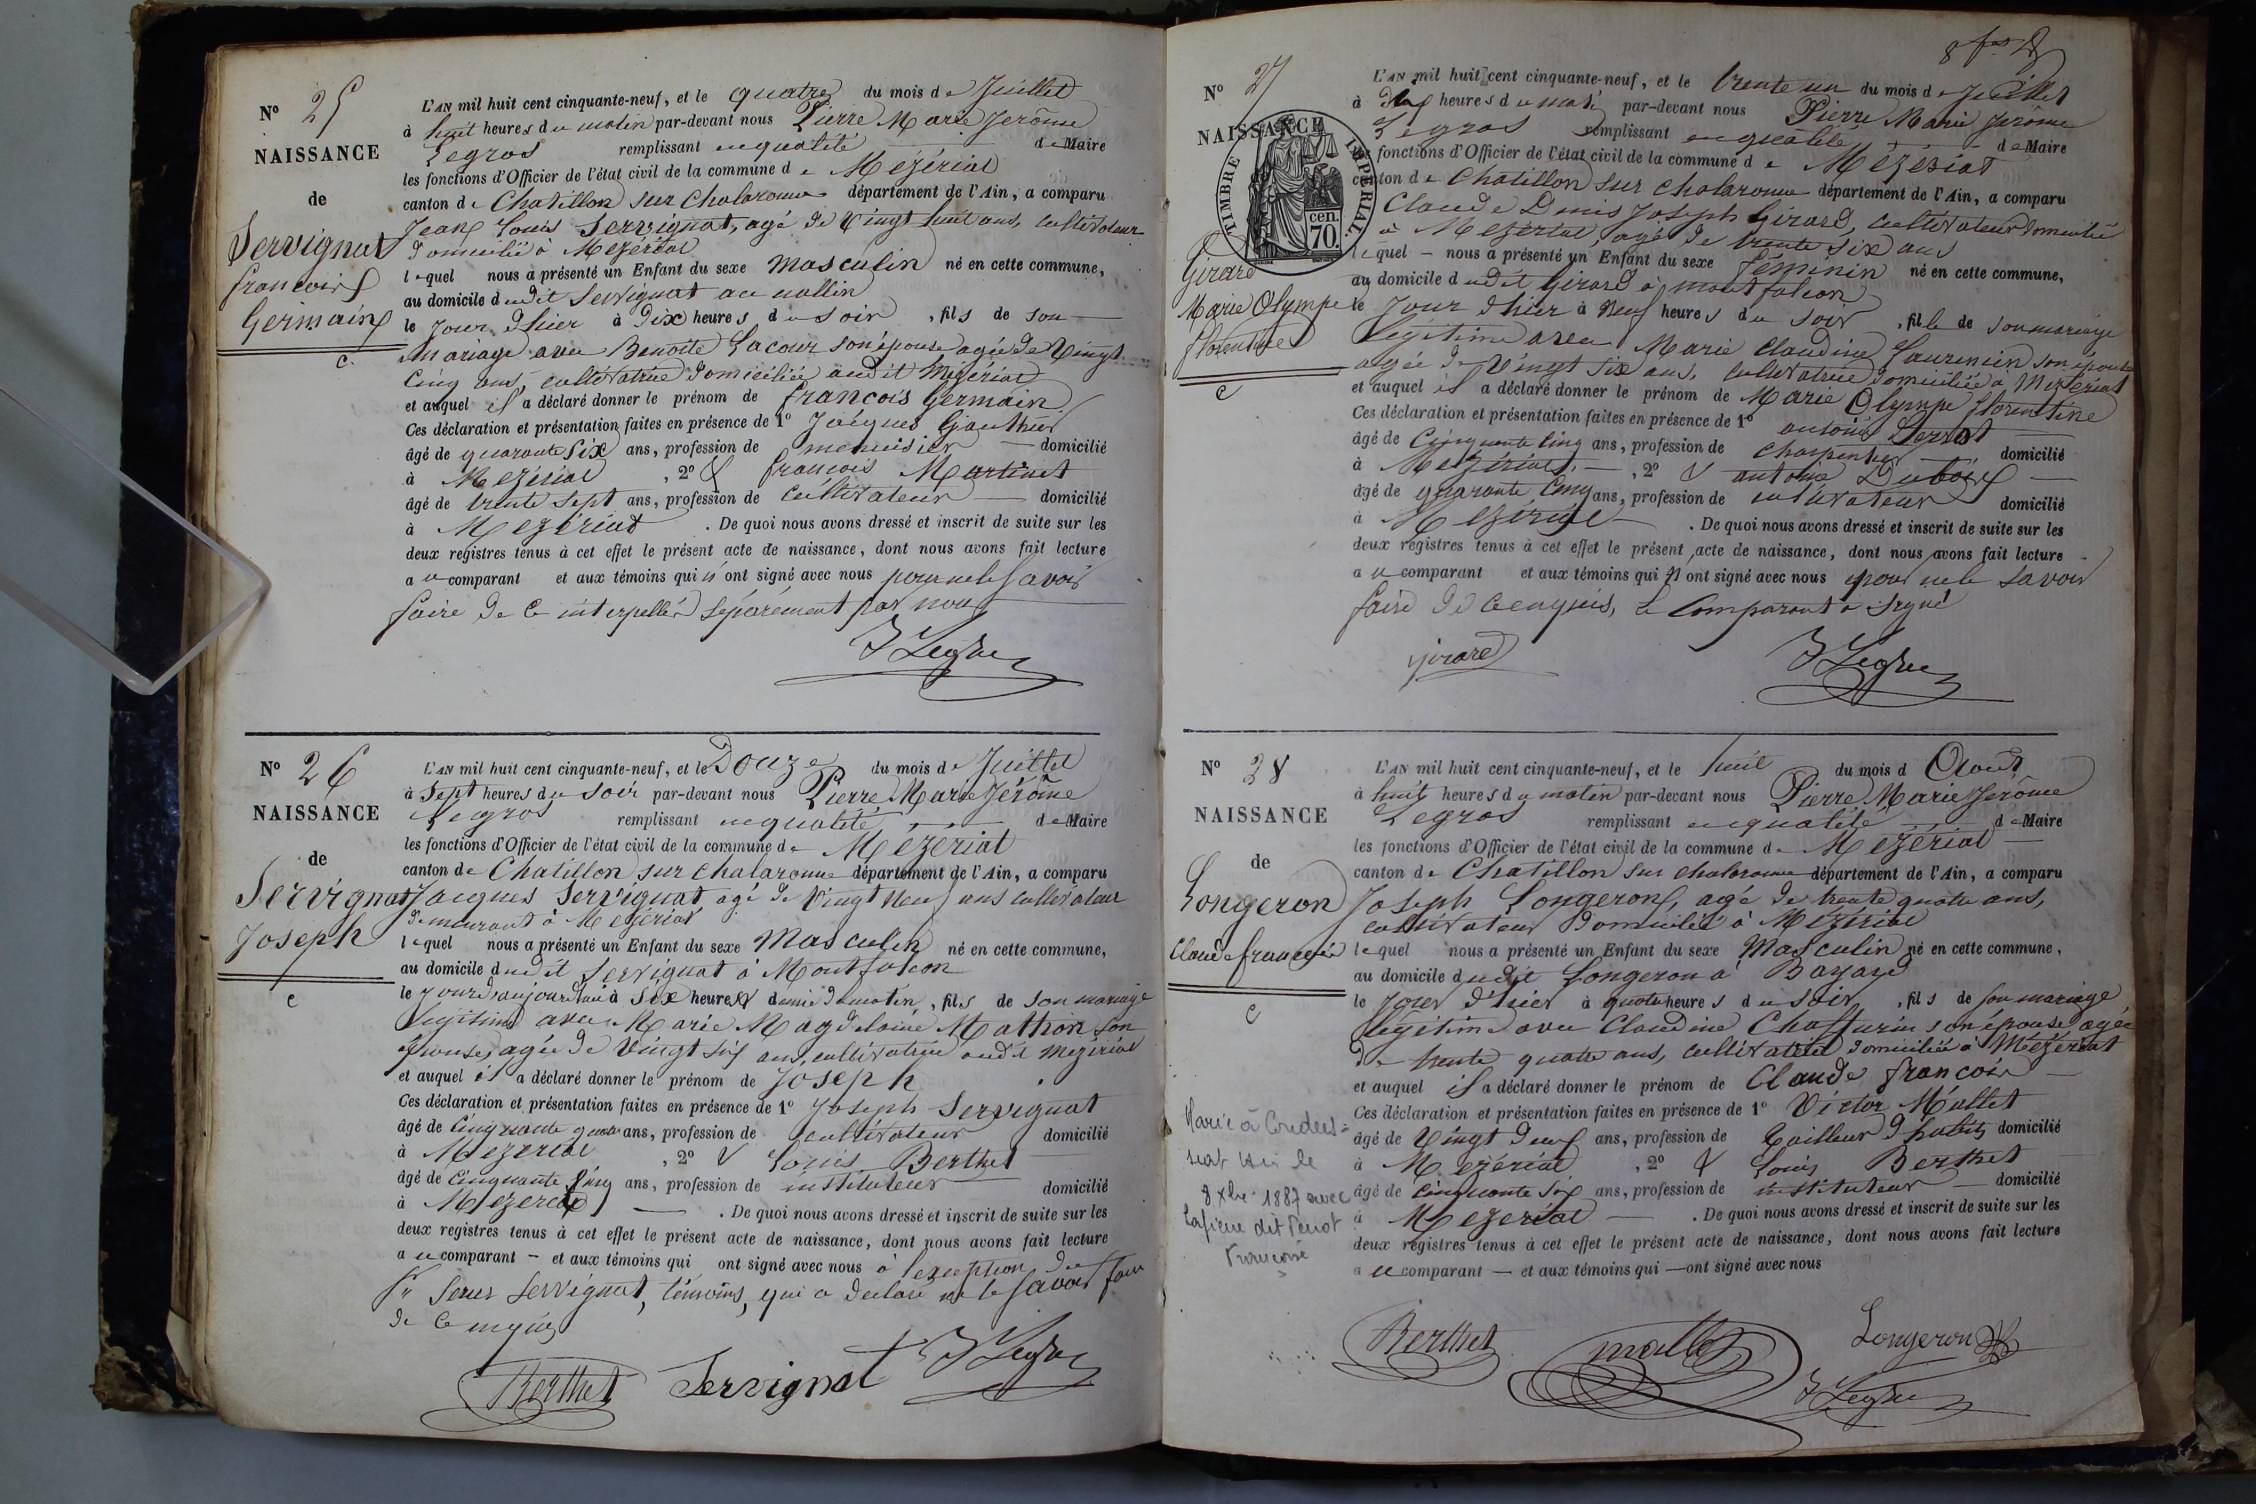 N° 25
NAISSANCE
de
Servignat
francois
Germain
c
L'AN mil huit cent cinquante-neuf, et le quatre du mois de Juillet
à huit heures du matin par-devant nous Pierre Marie Jerôme
Legros remplissant en qualité de Maire
les fonctions d'Officier de l'état civil de la commune de Mézériat
canton de Chatillon sur Chalaronne département de l'Ain, a comparu
Jean Louis Servignat, agé de Vingt huit ans, cultivateur
domicilié à Mezériat
lequel nous a présenté un Enfant du sexe masculin né en cette commune,
au domicile dudit Servignat au
le jour d'hier à dix heures du soir, fils de son
mariage avec Benoite Lacour son épouse agée de Vingt
cinq ans, cultivatrice domiciliée audit Mezériat
et auquel il a déclaré donner le prénom de françois Germain
Ces déclaration et présentation faites en présence de 1° Jacques Gauthier
âgé de quarante six ans, profession de menuisier domicilié
à Mezériat, 2° & françois Martinet
âgé de trente sept ans, profession de cultivateur domicilié
à Mezériat. De quoi nous avons dressé et inscrit de suite sur les
deux registres tenus à cet effet le présent acte de naissance, dont nous avons fait lecture
au comparant et aux témoins qui n'ont signé avec nous pour ne le savoir
faire de ce interpellés séparément par nous
JLegros
N° 26
NAISSANCE
de
Servignat
Joseph
c
L'AN mil huit cent cinquante-neuf, et le Douze du mois de Juillet
à sept heures du soir par-devant nous Pierre Marie Jérôme
Legros remplissant en qualité de Maire
les fonctions d'Officier de l'état civil de la commune de Mézériat
canton de Chatillon sur chalaronne département de l'Ain, a comparu
Jacques Servignat agé de Vingt neuf ans cultivateur
demeurant à Mezériat
lequel nous a présenté un Enfant du sexe Masculin né en cette commune,
au domicile dudit Servignat à Montfalcon
le jour d'aujourd'hui à six heures & demie du matin, fils de son mariage
légitime avec Marie Magdelaine Mathion son
épouse, agée de vingt six ans, cultivatrice audit Mezériat
et auquel il a déclaré donner le prénom de Joseph
Ces déclaration et présentation faites en présence de 1° Joseph Servignat
âgé de Cinquante quatre ans, profession de cultivateur domicilié
à Mezeriat, 2° & Louis Berthet
âgé de Cinquante cinq ans, profession de instituteur domicilié
à Mezeriat. De quoi nous avons dressé et inscrit de suite sur les
deux registres tenus à cet effet le présent acte de naissance, dont nous avons fait lecture
au comparant – et aux témoins qui ont signé avec nous à l'exception du
Sr Servignat, témoins, qui a declaré ne le savoir faire
de ce enquis
Berthet Servignat JLegros
8 fos
N° 27
NAISSANCE
TIMBRE IMPERIAL
cen.
70.
Girard
Marie Olympe
florentine
c
L'AN mil huit cent cinquante-neuf, et le trente un du mois de Juillet
à dix heures du matin par-devant nous Pierre Marie Jerôme
Legros remplissant en qualité de Maire
les fonctions d'Officier de l'état civil de la commune de Mézériat
canton de Chatillon sur chalaronne département de l'Ain, a comparu
Claude Denis Joseph Girard, cultivateur domicilié
à Mezeriat, agé de trente six ans
lequel – nous a présenté un Enfant du sexe féminin né en cette commune,
au domicile dudit Girard à montfalcon
le jour d'hier à neuf heures du soir, fille de son mariage
légitime avec Marie Claudine Laurencin son épouse
agée de Vingt six ans, cultivatrice domiciliée à Mezeriat
et auquel il a déclaré donner le prénom de Marie Olympe florentine
Ces déclaration et présentation faites en présence de 1° antoine Perrat
âgé de Cinquante cinq ans, profession de charpentier domicilié
à Mezériat, 2° & antoine Dubois
âgé de quarante cinq ans, profession de cultivateur domicilié
à Mezériat. De quoi nous avons dressé et inscrit de suite sur les
deux registres tenus à cet effet le présent acte de naissance, dont nous avons fait lecture
au comparant et aux témoins qui n'ont signé avec nous pour ne le savoir
faire de ce enquis, le Comparant a signé
Girard JLegros
N° 28
NAISSANCE
de
Longeron
Claude françois
c
Marié à
le
8 xbre 1887 avec
dit
L'AN mil huit cent cinquante-neuf, et le huit du mois d Août
à huit heures du matin par-devant nous Pierre Marie Jerôme
Legros remplissant en qualité de Maire
les fonctions d'Officier de l'état civil de la commune de Mézériat
canton de Chatillon sur chalaronne département de l'Ain, a comparu
Joseph Longeron, agé de trente quatre ans,
cultivateur domicilié à Mezériat
lequel nous a présenté un Enfant du sexe Masculin né en cette commune,
au domicile dudit Longeron à Bayard
le jour d'hier à quatre heures du soir, fils de son mariage
légitime avec Claudine Chaffurin son épouse agée
de trente quatre ans, cultivatrice domiciliée à Mézériat
et auquel il a déclaré donner le prénom de Claude françois
Ces déclaration et présentation faites en présence de 1° Victor Mallet
âgé de Vingt deux ans, profession de tailleur d'habits domicilié
à Mezériat, 2° & Louis Berthet
âgé de Cinquante six ans, profession de instituteur domicilié
à Mezeriat. De quoi nous avons dressé et inscrit de suite sur les
deux registres tenus à cet effet le présent acte de naissance, dont nous avons fait lecture
au comparant — et aux témoins qui — ont signé avec nous
Berthet mallet Longeron
JLegros